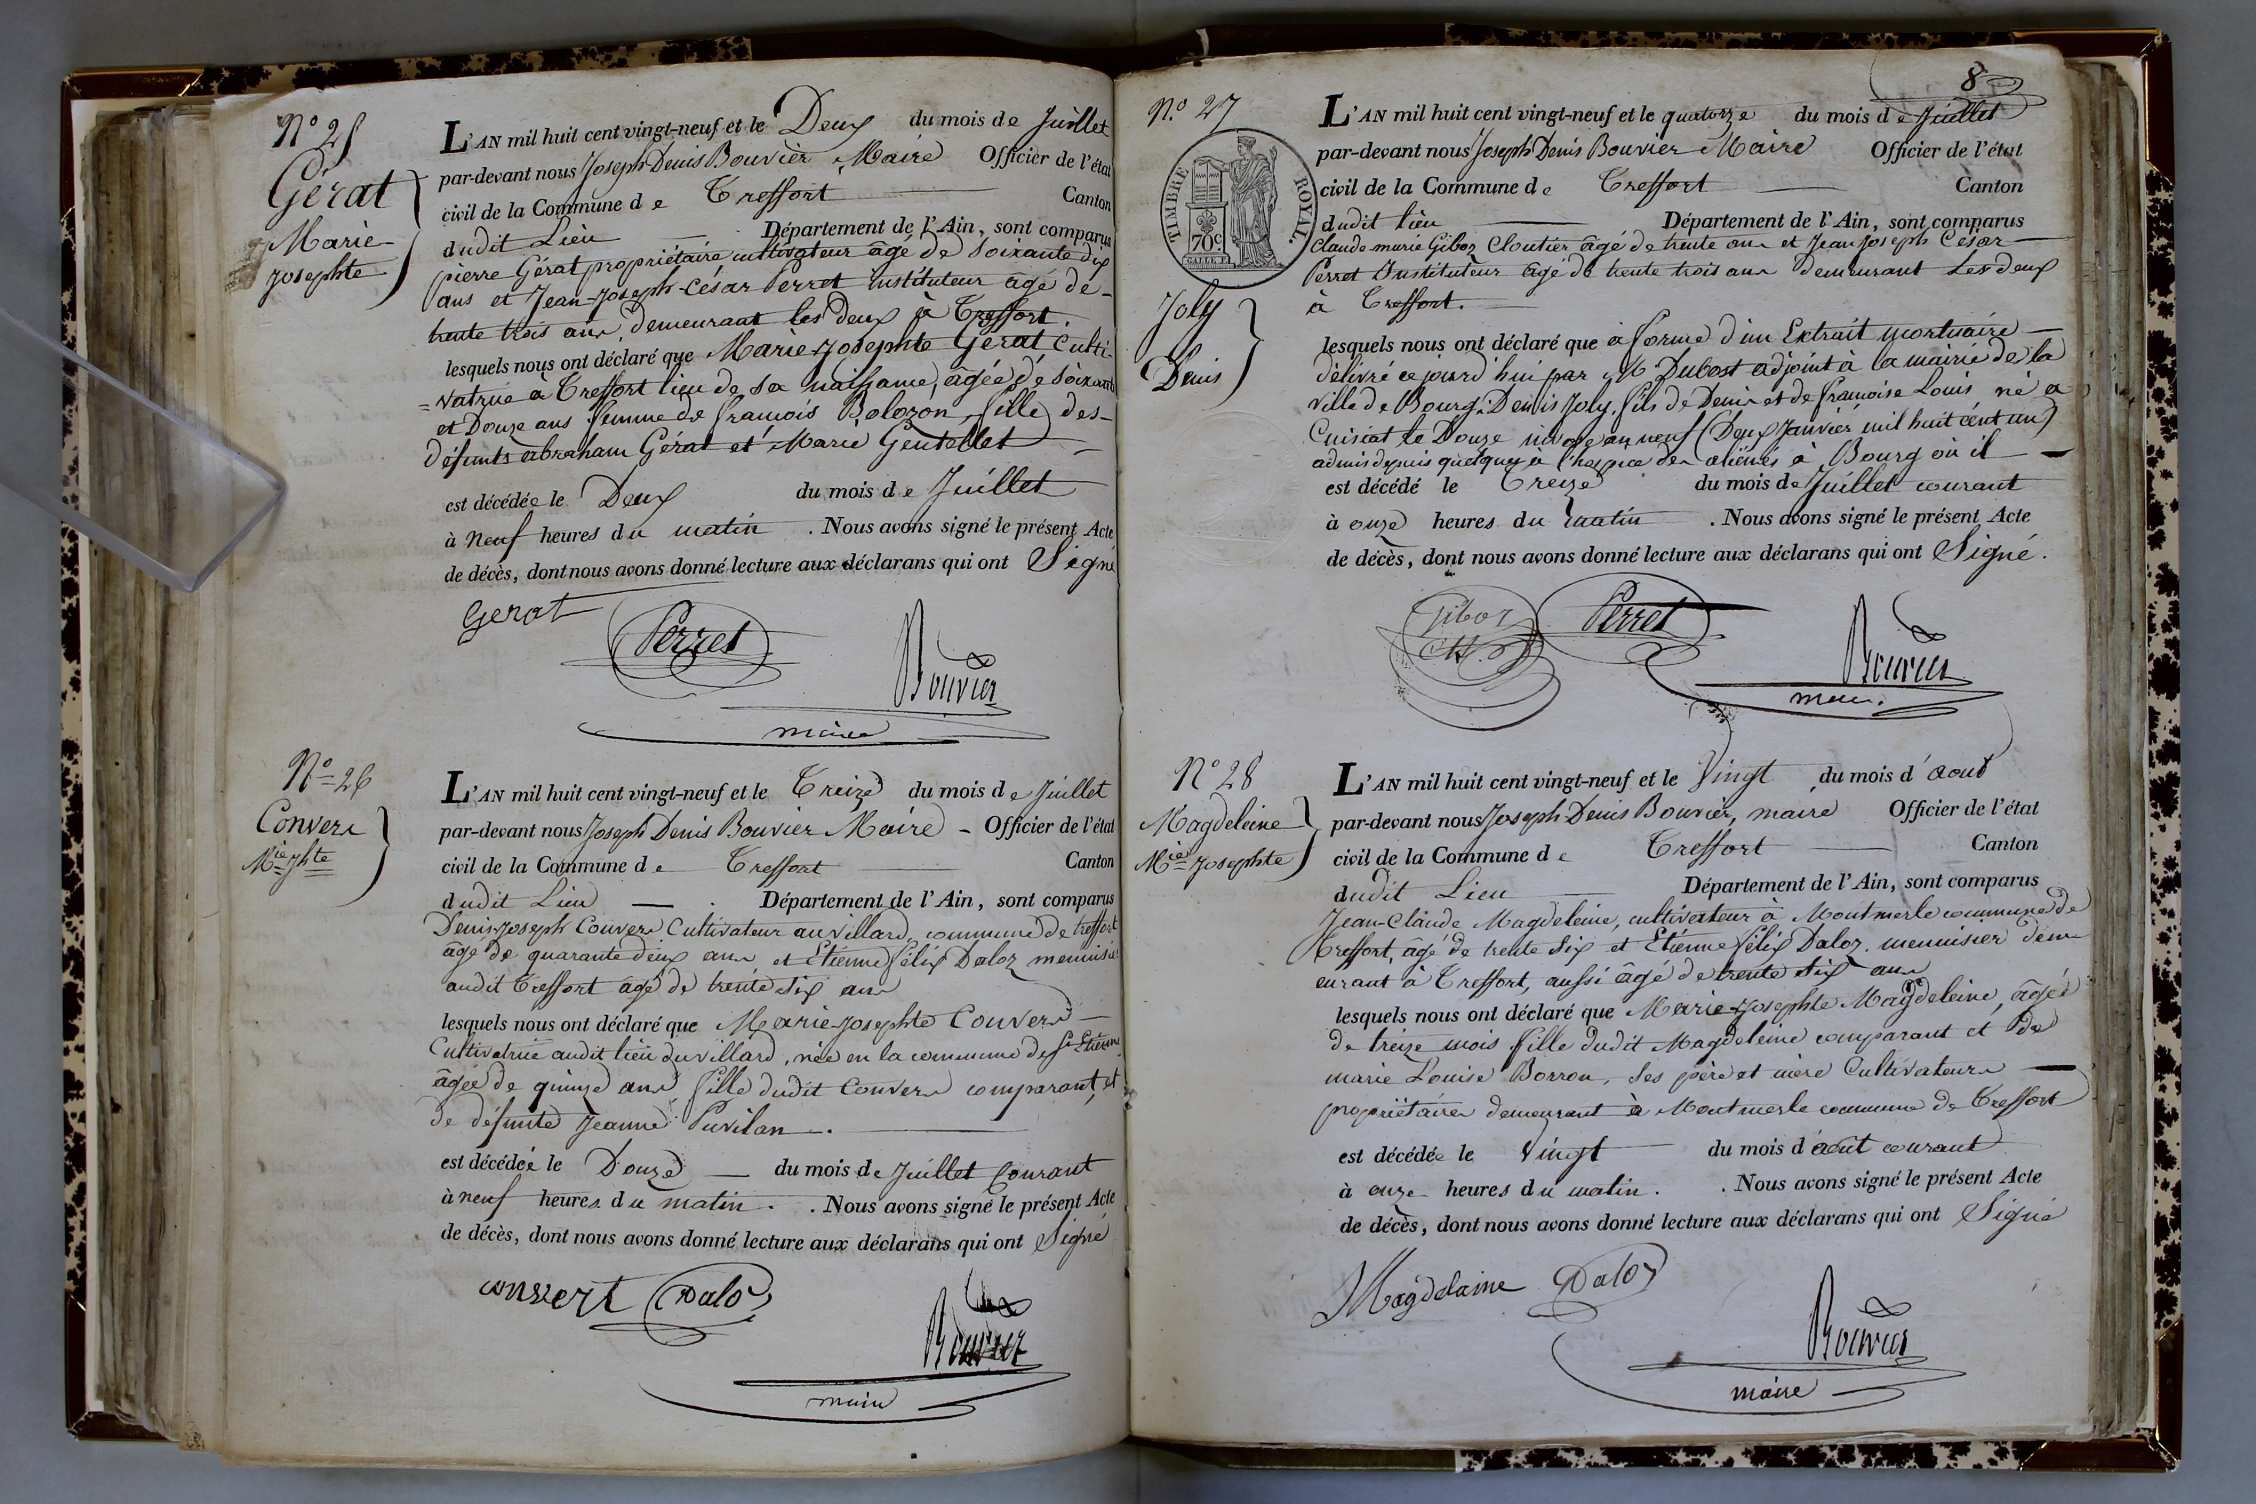 N° 25
Gérat
Marie
josephte
L'AN mil huit cent vingt-neuf et le Deux du mois de Juillet
par-devant nous Joseph Denis Bouvier, Maire Officier de l'état
civil de la Commune de Treffort Canton
dudit Lieu Département de l'Ain, sont comparus
pierre Gérat propriétaire cultivateur âgé de soixante dix
ans et Jean-Joseph-César Perret instituteur âgé de
trente trois ans demeurant les deux à Treffort.
lesquels nous ont déclaré que Marie-Josephte Gérat Culti-
=vatrice à Treffort lieu de sa naissance, âgée de soixante
et Douze ans femme de francois Bolozon, fille des
défunts abraham Gérat et Marie Gentellet
est décédée le Deux du mois de Juillet
à Neuf heures du matin. Nous avons signé le présent Acte
de décès, dont nous avons donné lecture aux déclarans qui ont Signé
Gerat
Perret
Bouvier
maire
N° 26
Convers
Mie jhte
L'AN mil huit cent vingt-neuf et le Treize du mois de Juillet
par-devant nous Joseph Denis Bouvier Maire - Officier de l'état
civil de la Commune de Treffort Canton
dudit Lieu Département de l'Ain, sont comparus
Denis-Joseph Convers Cultivateur au villard, commune de treffort
âgé de quarante deux ans et Etienne félix Daloz menuisier
audit Treffort âgé de trente six ans
lesquels nous ont déclaré que Marie-Josephte Convers
Cultivatrice audit lieu du villard, née en la commune de St Etienne
âgée de quinze ans, fille dudit Convers comparant, et
de défunte Jeanne Puvilan.
est décédée le Douze du mois de Juillet Courant
à neuf heures du matin. Nous avons signé le présent Acte
de décès, dont nous avons donné lecture aux déclarans qui ont Signé
convert Daloz
Bouvier
maire
8
N° 27
TIMBRE ROYAL.
70c
Joly
Denis
L'AN mil huit cent vingt-neuf et le quatorze du mois de Juillet
par-devant nous Joseph Denis Bouvier Maire Officier de l'état
civil de la Commune de Treffort Canton
dudit lieu Département de l'Ain, sont comparus
Claude marie Giboz Cloutier âgé de trente ans et Jean Joseph César
Perret Instituteur âgé de trente trois ans demeurant Les deux
à Treffort.
lesquels nous ont déclaré que à forme d'un Extrait mortuaire
délivré ce jourd'hui par M Dubost adjoint à la mairie de la
ville de Bourg. Denis Joly, fils de Denis et de francoise Louis né a
Cuisiat le Douze nivose an neuf (Deux Janvier mil huit cent un)
admis depuis quelques à l'hospice des aliénés à Bourg où il
est décédé le Treize du mois de Juillet courant
à onze heures du matin. Nous avons signé le présent Acte
de décès, dont nous avons donné lecture aux déclarans qui ont Signé.
Giboz Perret
Bouvier
maire.
N° 28
Magdeleine
Mie Josephte
L'AN mil huit cent vingt-neuf et le Vingt du mois d'aout
par-devant nous Joseph-Denis Bouvier, maire Officier de l'état
civil de la Commune de Treffort Canton
dudit Lieu Département de l'Ain, sont comparus
Jean-Claude Magdeleine, cultivateur à Montmerle commune de
Treffort, âgé de trente six et Etienne félix Daloz menuisier dem
eurant à Treffort, aussi âgé de trente six ans
lesquels nous ont déclaré que Marie-Josephte Magdeleine, âgée
de treize mois fille dudit Magdeleine comparant et de
marie Louise Borron, ses père et mère Cultivateurs
propriétaires demeurant à Montmerle commune de Treffort
est décédée le Vingt du mois d'août courant
à onze heures du matin. Nous avons signé le présent Acte
de décès, dont nous avons donné lecture aux déclarans qui ont Signé
Magdelaine Daloz
Bouvier
maire